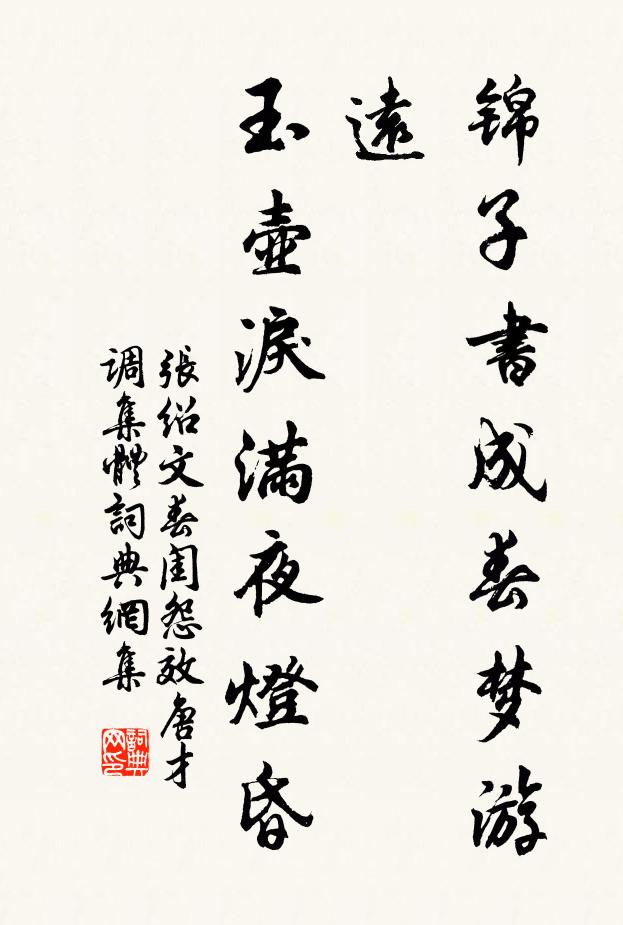 锦子書成春梦游
遠
玉壺淚滿夜燈昏
張绍文春闺怨效唐才
調集體詞典網集
詞典
网印